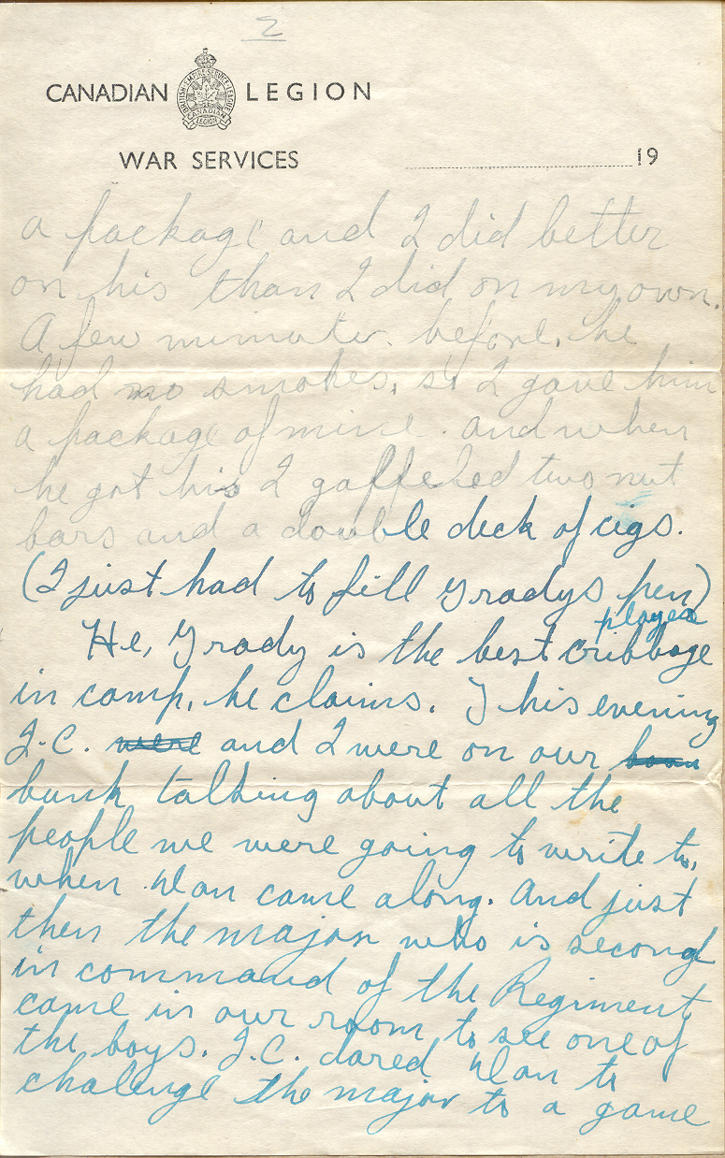 2
CANADIAN LEGION
WAR SERVICES 19
a package and I did better
on his than I did on my own.
A few minutes before, he
had no smokes, so I gave him
a package of mine. and when
he got his I gaffeled two nut
bars and a double deck of cigs.
(I just had to fill Gradys pen)
player
He, Grady is the best cribbage
in camp, he claims. This evening
J.C. were and I were on our
bunk talking about all the
people we were going to write to,
when Dan came along. And just
then the major who is second
in command of the Regiment,
came in our room to see one of
the boys. J.C. dared Dan to
challenge the major to a game